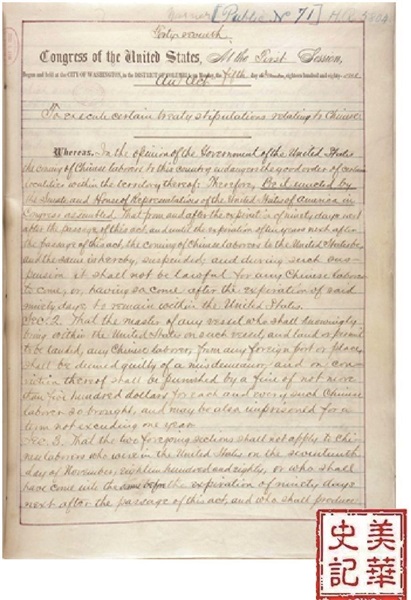 [Public No 71] H.R. 5804
Forty-seventh
Congress of the United States, At the First Session,
Begun and held at the CITY OF WASHINGTON, in the DISTRICT OF COLUMBIA, on Monday, the fifth day of December, eighteen hundred and eighty-one
An Act
To execute certain treaty stipulations relating to Chinese
Whereas, In the opinion of the Government of the United States
the coming of Chinese laborers to this country endangers the good order of certain
localities within the territory thereof: Therefore, Be it enacted by
the Senate and House of Representatives of the United States of America in
Congress assembled, That from and after the expiration of ninety days next
after the passage of this act, and until the expiration of ten years next after
the passage of this act, the coming of Chinese laborers to the United States be,
and the same is hereby, suspended; and during such sus-
pension it shall not be lawful for any Chinese laborer
to come, or, having so come after the expiration of said
ninety days to remain within the United States.
Sec. 2. That the master of any vessel who shall knowingly
bring within the United States on such vessel, and land or permit
to be landed, any Chinese laborer, from any foreign port or place,
shall be deemed guilty of a misdemeanor, and on con-
viction thereof shall be punished by a fine of not more
than five hundred dollars for each and every such Chinese
laborer so brought, and may be also imprisoned for a
term not exceeding one year.
Sec. 3. That the two foregoing sections shall not apply to Chi-
nese laborers who were in the United States on the seventeenth
day of November, eighteen hundred and eighty, or who shall
have come into the same before the expiration of ninety days
next after the passage of this act, and who shall produce
美華
史記